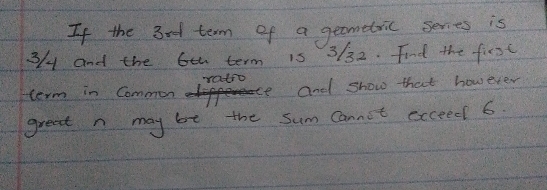 If the 3rd term of a geometric series is
3/4 and the 6th term is 3/32. Find the first
term in common ratio and show that however
great n may be the sum cannot exceed 6.